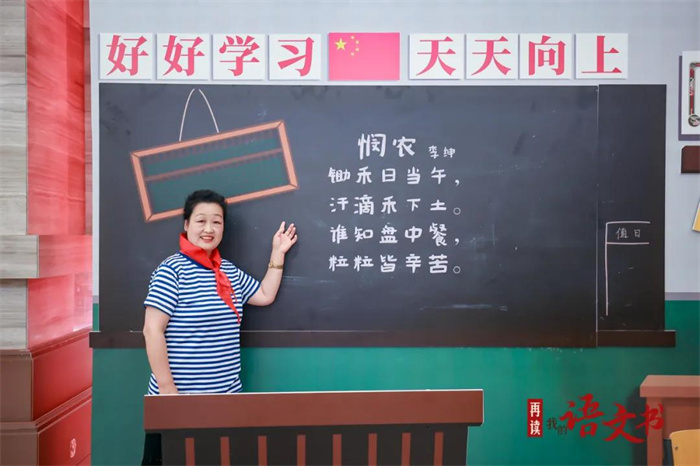 好好学习 天天向上
悯农 李绅
锄禾日当午，
汗滴禾下土。
谁知盘中餐，
粒粒皆辛苦。
值日
再读
我的语文书